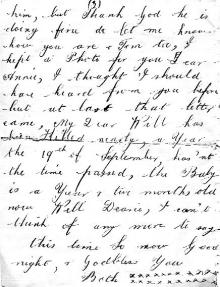 (3)
him, but Thank God he is
doing fine do let me know
how you are & Tom too, I
kept a Photo for you Dear
Annie, I thought I should
have heard from you before
but at last that letter
came, My Dear Will has
been Killed nearly a Year
the 19th of September, has'nt
the time passed, the Baby
is a Year & five months old
now Will Dearie, I can't
think of any more to say
this time so now Good
night, & God bless You
Beth xxxxxxxx